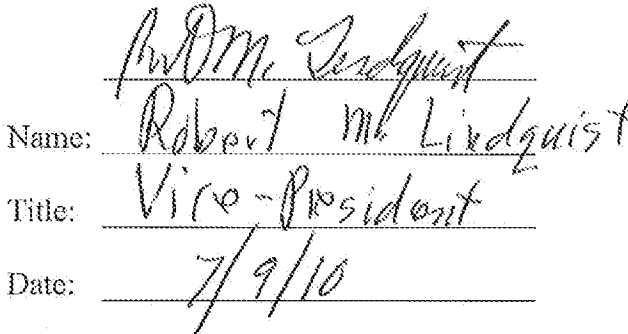 M. Lindquist
Name: Robert M. Lindquist
Title: Vice-President
Date: 7/9/10